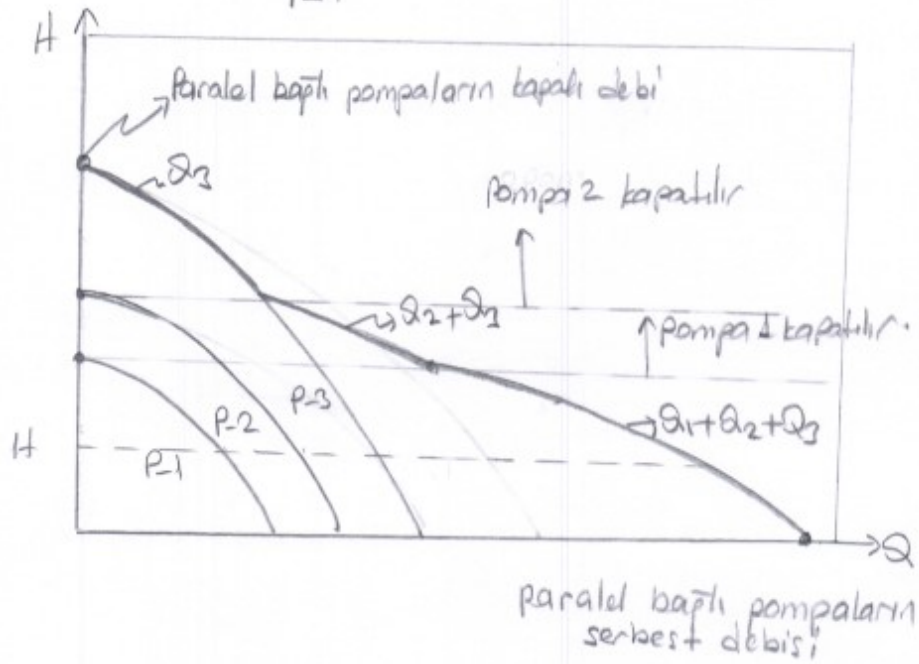 H
Paralel bağlı pompaların kapalı debi
Q3
Pompa 2 kapatılır
Q2+Q3
Pompa 1 kapatılır.
P-3
P-2
Q1+Q2+Q3
H
P-1
Q
paralel bağlı pompaların
serbest debisi